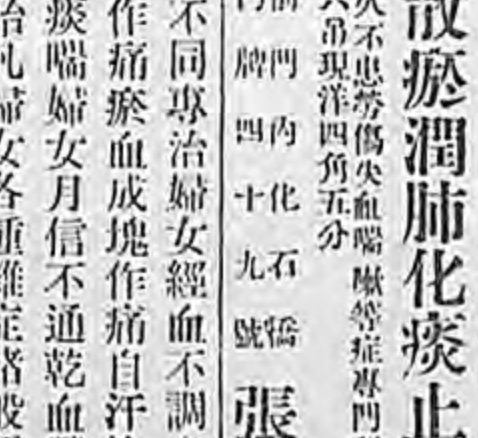 散瘀潤肺化痰止
久不忠勞傷失血喘嗽等症專門
吊現洋四角五分
前門內化石橋
門牌四十九號
張
不同專治婦女經血不調
作痛瘀血成塊作痛自汗
痰喘婦女月信不通乾血
治凡婦女各種雜症諸般